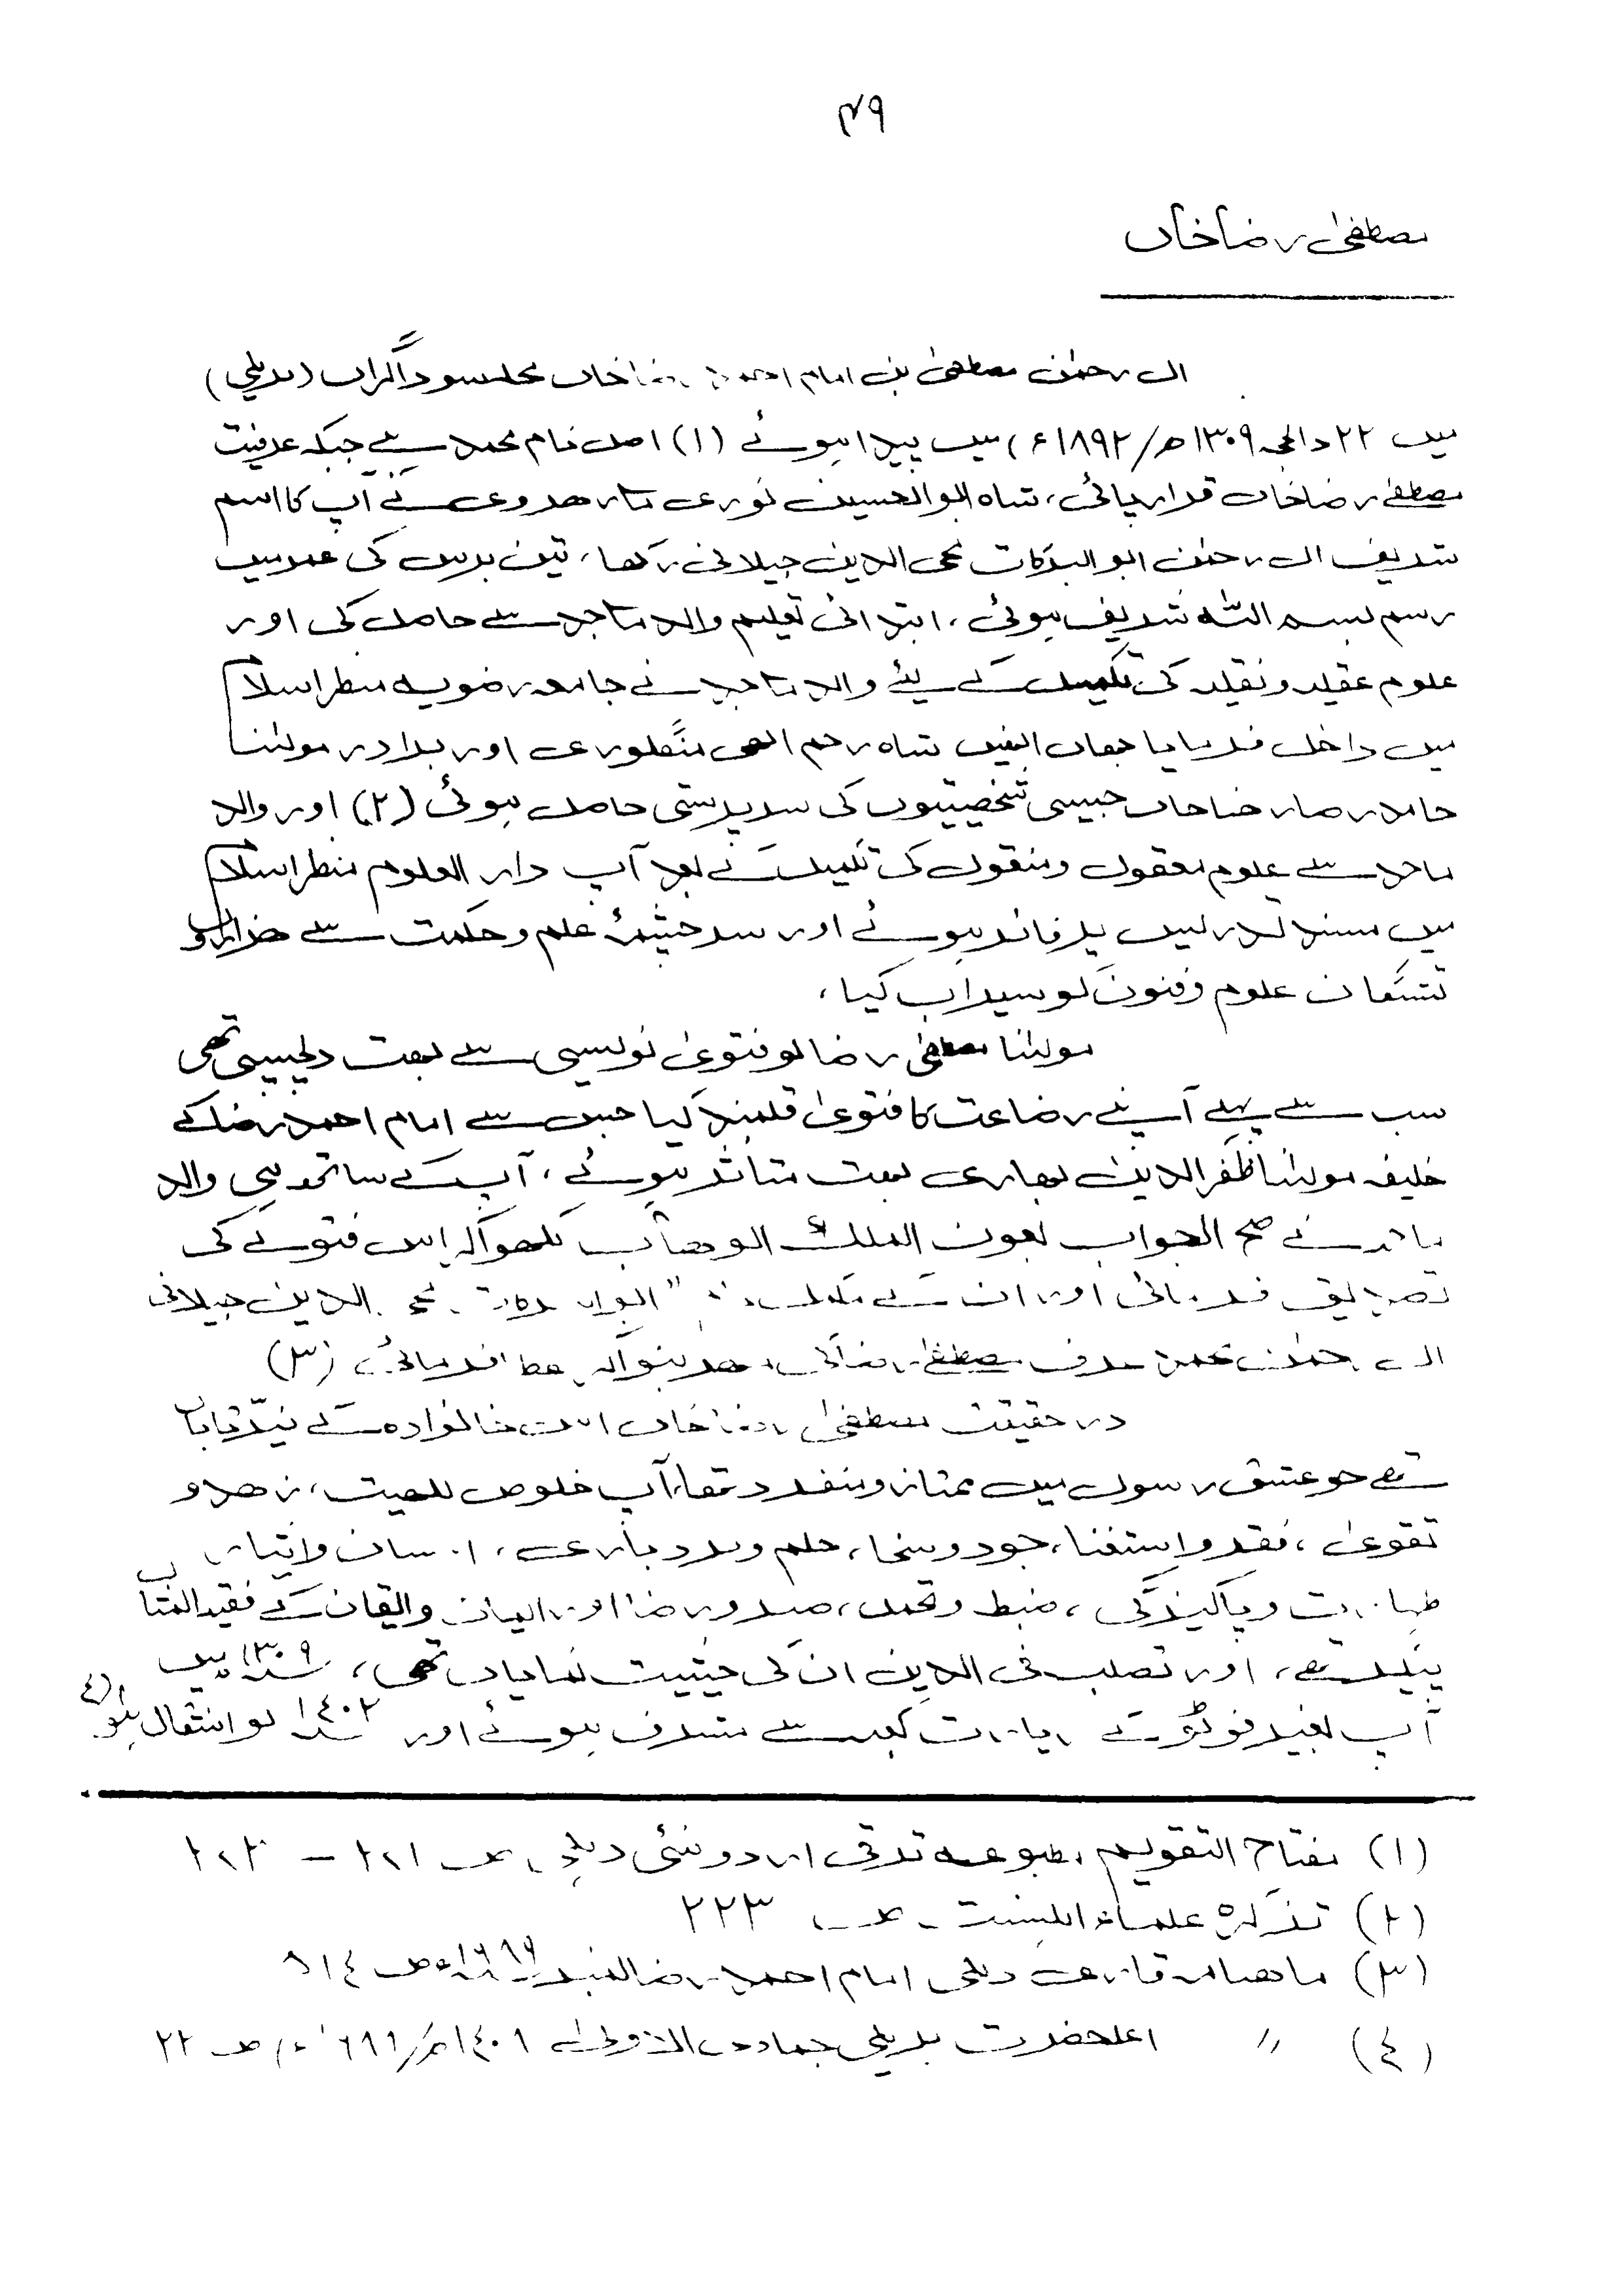 ۴۹
مصطفیٰ رضا خاں
ال رحمٰن مصطفیٰ بن امام احمد رضا خاں محلہ سوداگراں (بریلی)
میں ۲۲ ذالحجہ ۱۳۰۹ھ/۱۸۹۲ء میں پیدا ہوئے (۱) اصل نام محمد ہے جبکہ عرفیت
مصطفےٰ رضا خاں قرار پائی، شاہ ابوالحسین نوری مارھروی نے آپ کا اسم
شریف ال رحمٰن ابوالبرکات محی الدین جیلانی رکھا، تین برس کی عمر میں
رسم بسم اللہ شریف ہوئی، ابتدائی تعلیم والد ماجد سے حاصل کی اور
علوم عقلیہ و نقلیہ کی تکمیل کے لیئے والد ماجد نے جامعہ رضویہ منظر اسلام
میں داخل فرمایا جہاں انھیں شاہ رحم الٰھی منگلوری اور برادر مولٰنا
حامد رضا خاں جیسی شخصیتوں کی سرپرستی حاصل ہوئی (۲) اور والد
ماجد سے علوم معقول و منقول کی تکمیل کے بعد آپ دار العلوم منظر اسلام
میں مسند تدریس پر فائز ہوئے اور سرچشمۂ علم و حکمت سے ھزاروں
تشنگان علوم و فنون کو سیراب کیا،
مولٰنا مصطفیٰ رضا کو فتویٰ نویسی سے بہت دلچسپی تھی
سب سے پہلے آپنے رضاعت کا فتویٰ قلمبند کیا جس سے امام احمد رضا کے
خلیفہ مولٰنا ظفر الدین بہاری بہت متاثر ہوئے، آپ کے ساتھ ہی والد
ماجد نے صح الجواب بعون الملک الوھاب لکھوا کر اس فتوے کی
تصدیق فرمائی اور ان کے " ابوالبرکات محی الدین جیلانی
ال رحمٰن محمد عرف مصطفےٰ رضا کی مھر بنوا کر عطا فرمائی، (۳)
در حقیقت مصطفیٰ رضا خاں اس خانوادہ کے نیّر تاباں
تھے جو عشق رسول میں ممتاز و منفرد تھا، آپ خلوص للھیت، زھد و
تقویٰ، فقر و استغنا، جود و سخا، حلم و بردباری، احسان و ایثار،
طہارت و پاکیزگی، ضبط و تحمل، صبر و رضا اور ایمان و ایقان کے فقید المثال
پیکر تھے، اور تصلب فی الدین ان کی حیثیت نمایاں تھی، ۱۳۰۹ میں
آپ بغیر فوٹو کے زیارت کعبہ سے مشرف ہوئے اور ۱۴۰۲ کو انتقال ہوا (۴)
(۱) مفتاح التقویم، مطبوعہ ترقی اردو نئی دہلی، ص
(۲) تذکرہ علماء اہلسنت، ص ۲۲۳
(۳) ماھنامہ قاری دہلی امام احمد رضا نمبر ص
(۴) 〃 اعلحضرت بریلی جمادی الاولیٰ ص ۲۲